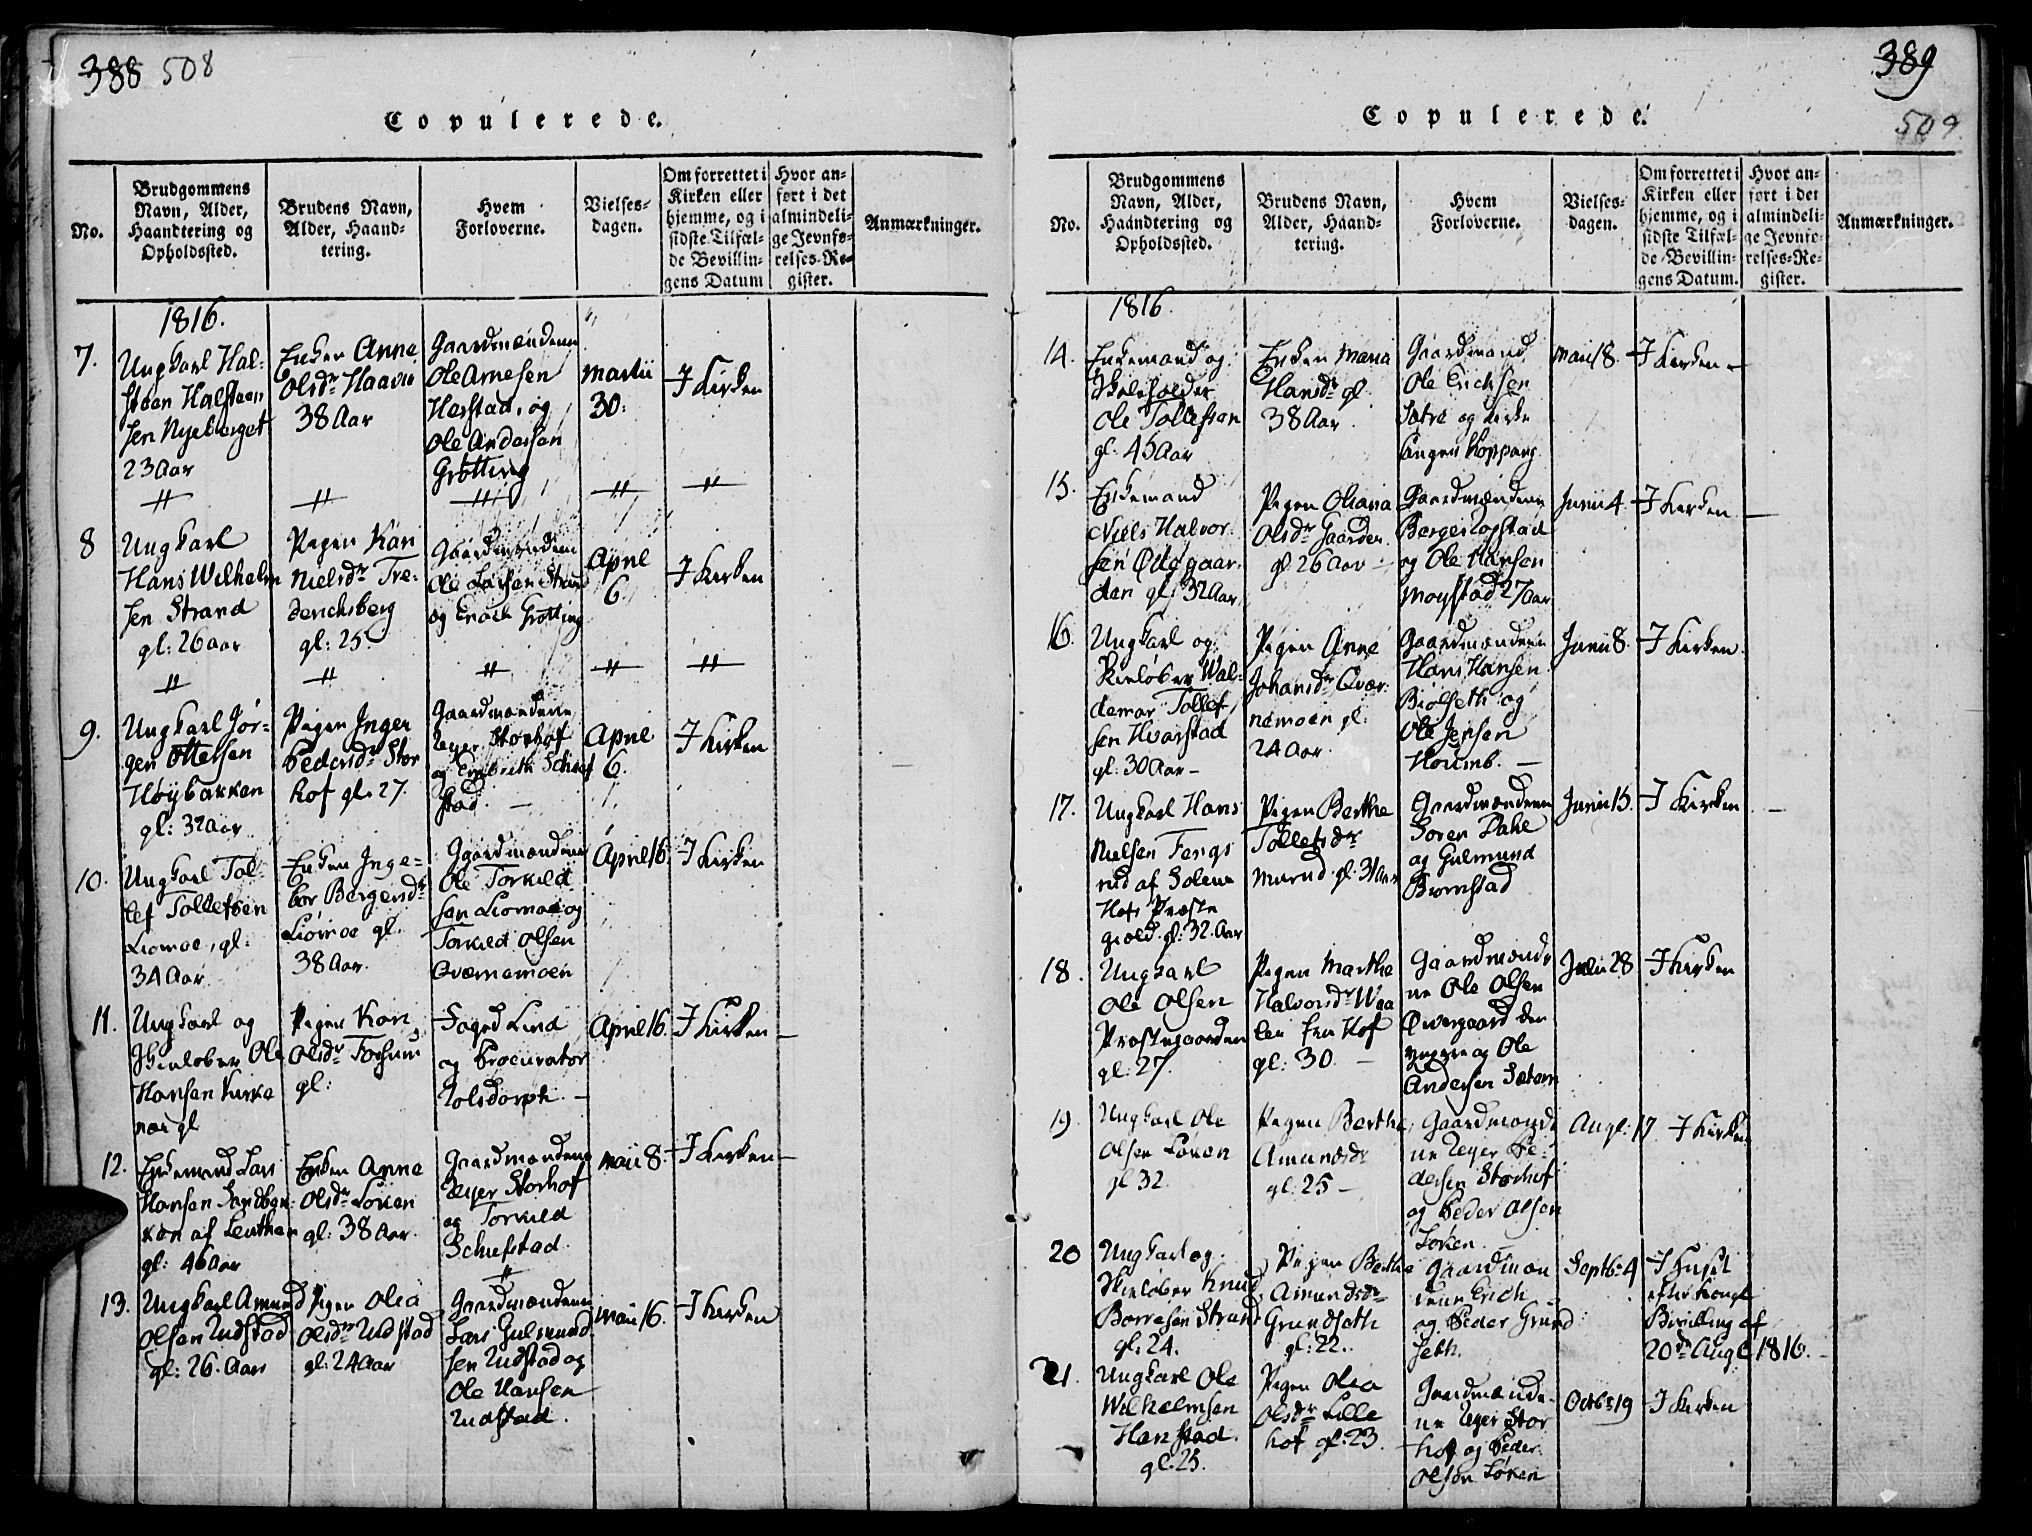 388 508
Copulerede.
No.
Brudgommens
Navn, Alder,
Haandtering og
Opholdssted.
Brudens Navn,
Alder, Haand-
tering.
Hvem
Forloverne.
Vielses-
dagen.
Om forrettet i
Kirken eller
hjemme, og i
sidste Tilfæl-
de Bevillin-
gens Datum
Hvor an-
ført i det
almindeli-
ge Jevnfø-
relses-Re-
gister.
Anmærkninger.
1816.
7.
Ungkarl Hal-
steen Halsteen
sen Nyeberget
23 Aar
Enken Anne
Olsdr Haavie
38 Aar
Gaardmændene
Ole Arnesen
Harstad, og
Ole Andersen
Grøtting
Martii
30.
I Kirken
8
Ungkarl
Hans Wilhelm
sen Strand
gl: 26 aar
Pigen Kari
Nielsdr Fre-
derichsberg
gl: 25.
Gaardmændene
Ole Larsen Strand
og Enoch Grøtting
Aprile
6.
I Kirken
9.
Ungkarl Jör-
gen Ottersen
Høybakken
gl: 32 aar
Pigen Inger
Pedersdr Stor
hof gl. 27.
Gaardmændene
Reyer Storhof
og Engebreth
stad.
Aprile
6.
I Kirken
10.
Ungkarl Tol-
lef Tollefsen
Liomoe, gl.
34 Aar
Enken Inge-
bor Bergersdr
Liömoe gl.
38 Aar.
Gaardmændene
Ole Torkild
sen Liomoe og
Torkild Olsen
Qværnemoen
April 16.
I Kirken
11.
Ungkarl og
Skieløber Ole
Hansen Kirke
næs gl
Pigen Kari
Olsdr Fossum
gl:
Foged Lind
og Procurator
Kolsdorph. -
April 16.
I Kirken
12.
Enkemand Lars
Hansen Sandbæk-
ken af Leuthen
gl: 46 Aar
Enken Anne
Olsdr Löken
gl: 38 Aar.
Gaardmændene
Reyer Storhof
og Torkild
Schiefstad.
Maii 8.
I Kirken
13.
Ungkarl Amund
Olsen Rustad
gl: 26. Aar
Pigen Olea
Olsdr Rustad
gl: 24 Aar
Gaardmændene
Lars Gulmund
sen Rustad og
Ole Hansen
Rustad.
Maii 16.
I Kirken
389
509
Copulerede.
No.
Brudgommens
Navn, Alder,
Haandtering og
Opholdssted.
Brudens Navn,
Alder, Haand-
tering.
Hvem
Forloverne.
Vielses-
dagen.
Om forrettet i
Kirken eller
hjemme, og i
sidste Tilfæl-
de Bevillin-
gens Datum.
Hvor an-
ført i det
almindeli-
ge Jevnfø-
relses-Re-
gister.
Anmærkninger.
1816.
14.
Enkemand og
Skoleholder
Ole Tollefsen
gl. 45 Aar
Enken Maria
Hansdr gl
38 Aar.
Gaardmand
Ole Erichsen
Sætre og Kirke
Sangeri Koppang.
Maii 8.
I Kirken
15.
Enkemand
Niels Halvor
sen Ødegaar-
den gl: 32 Aar
Pigen Oliana
Olsdr Gaarder
gl: 26 Aar
Gaardmændene
Berger Opstad
og Ole Hansen
Mogstad 27 Aar
Junii 4.
I Kirken
16.
Ungkarl og
Skieløber Wal-
demar Tollef
sen Hvarstad
gl: 30 Aar
Pigen Anne
Johansdr Qvær-
nemoen gl:
24 Aar.
Gaardmændene
Hans Hansen
Biölseth og
Ole Jensen
Houmb.
Junii 8.
I Kirken
17.
Ungkarl Hans
Nielsen Fergs
rud af Solens
Hofs Præste
gield gl: 32 Aar
Pigen Berthe
Tollefsdr
Murud gl. 31 Aar
Gaardmændene
Soren Dahl
og Gulmund
Biørnstad
Junii 15.
I Kirken
18.
Ungkarl
Ole Olsen
Præstegaarden
gl: 27.
Pigen Marthe
Halvorsdr Waa
ler fra Hof
gl: 30.
Gaardmænde
ne Ole Olsen
Øvergaard den
yngre og Ole
Andersen Sætern
Julii 28
I Kirken
19.
Ungkarl Ole
Olsen Løken
gl 32.
Pigen Berthe
Amundsdr
gl: 25
Gaardmænde
ne Reyer Pe-
dersen Storhof
og Peder Olsen
Loken.
Augl: 17
I Kirken
20
Ungkarl og
Skieløber Knud
Borresen Strand
gl: 24.
Pigen Berthe
Amundsdr
Grundseth
gl: 22.
Gaardmæn
dene Erich
og Peder Grund
seth.
Septbr 4
I Huset
efter Kongl
Bevilling af
20de Augl 1816.
21.
Ungkarl Ole
Wilhelmsen
Hanstad.
gl. 25.
Pigen Olea
Olsdr Lille
hof gl. 23.
Gaardmænde-
ne Reyer Stor
hof og Peder
Olsen Löken
Octbr 19
I Kirken